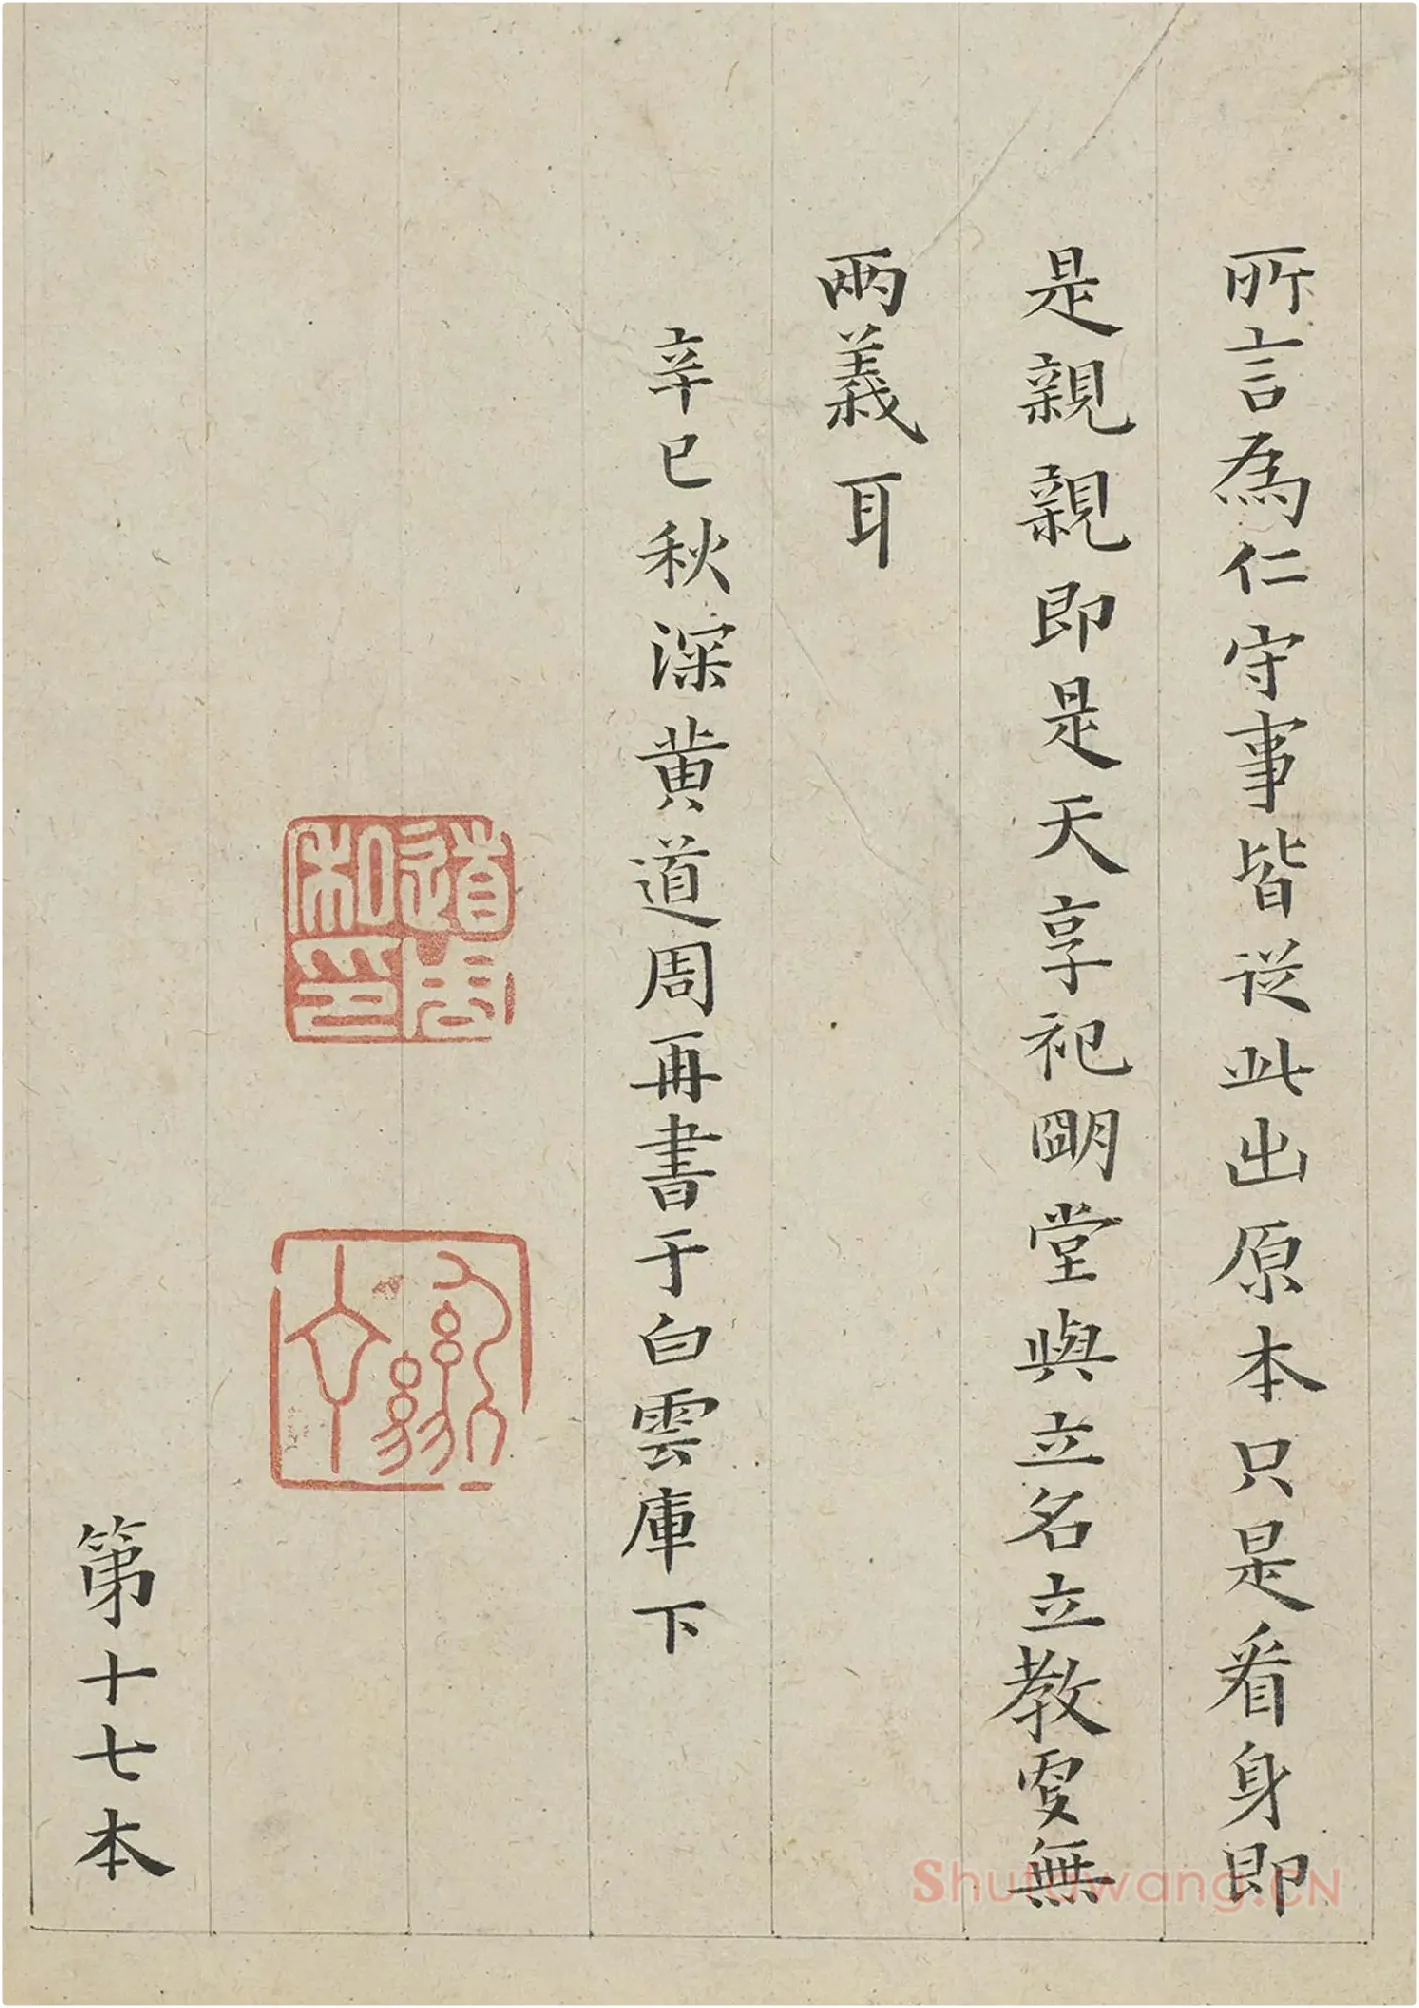 所言為仁守事皆從此出原本只是看身即
是親親即是天享祀明堂與立名立教更無
兩義耳
辛巳秋深黄道周再書于白雲庫下
道周
私印
第十七本
Shufawang.CN